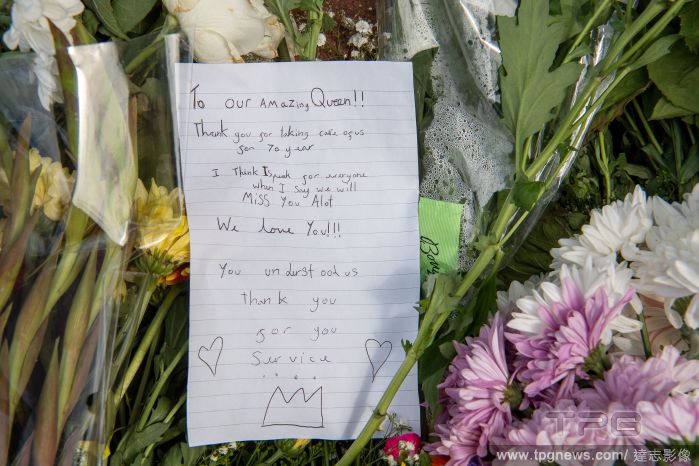 To OUR AMAZING Queen!!
Thank you for taking care of us
for 70 year
I Think I speak for everyone
when I say we will
MiSS You Alot
We love You!!!
You understood us
Thank you
for you
Service
....
TPG
www.tpgnews.com/達志影像